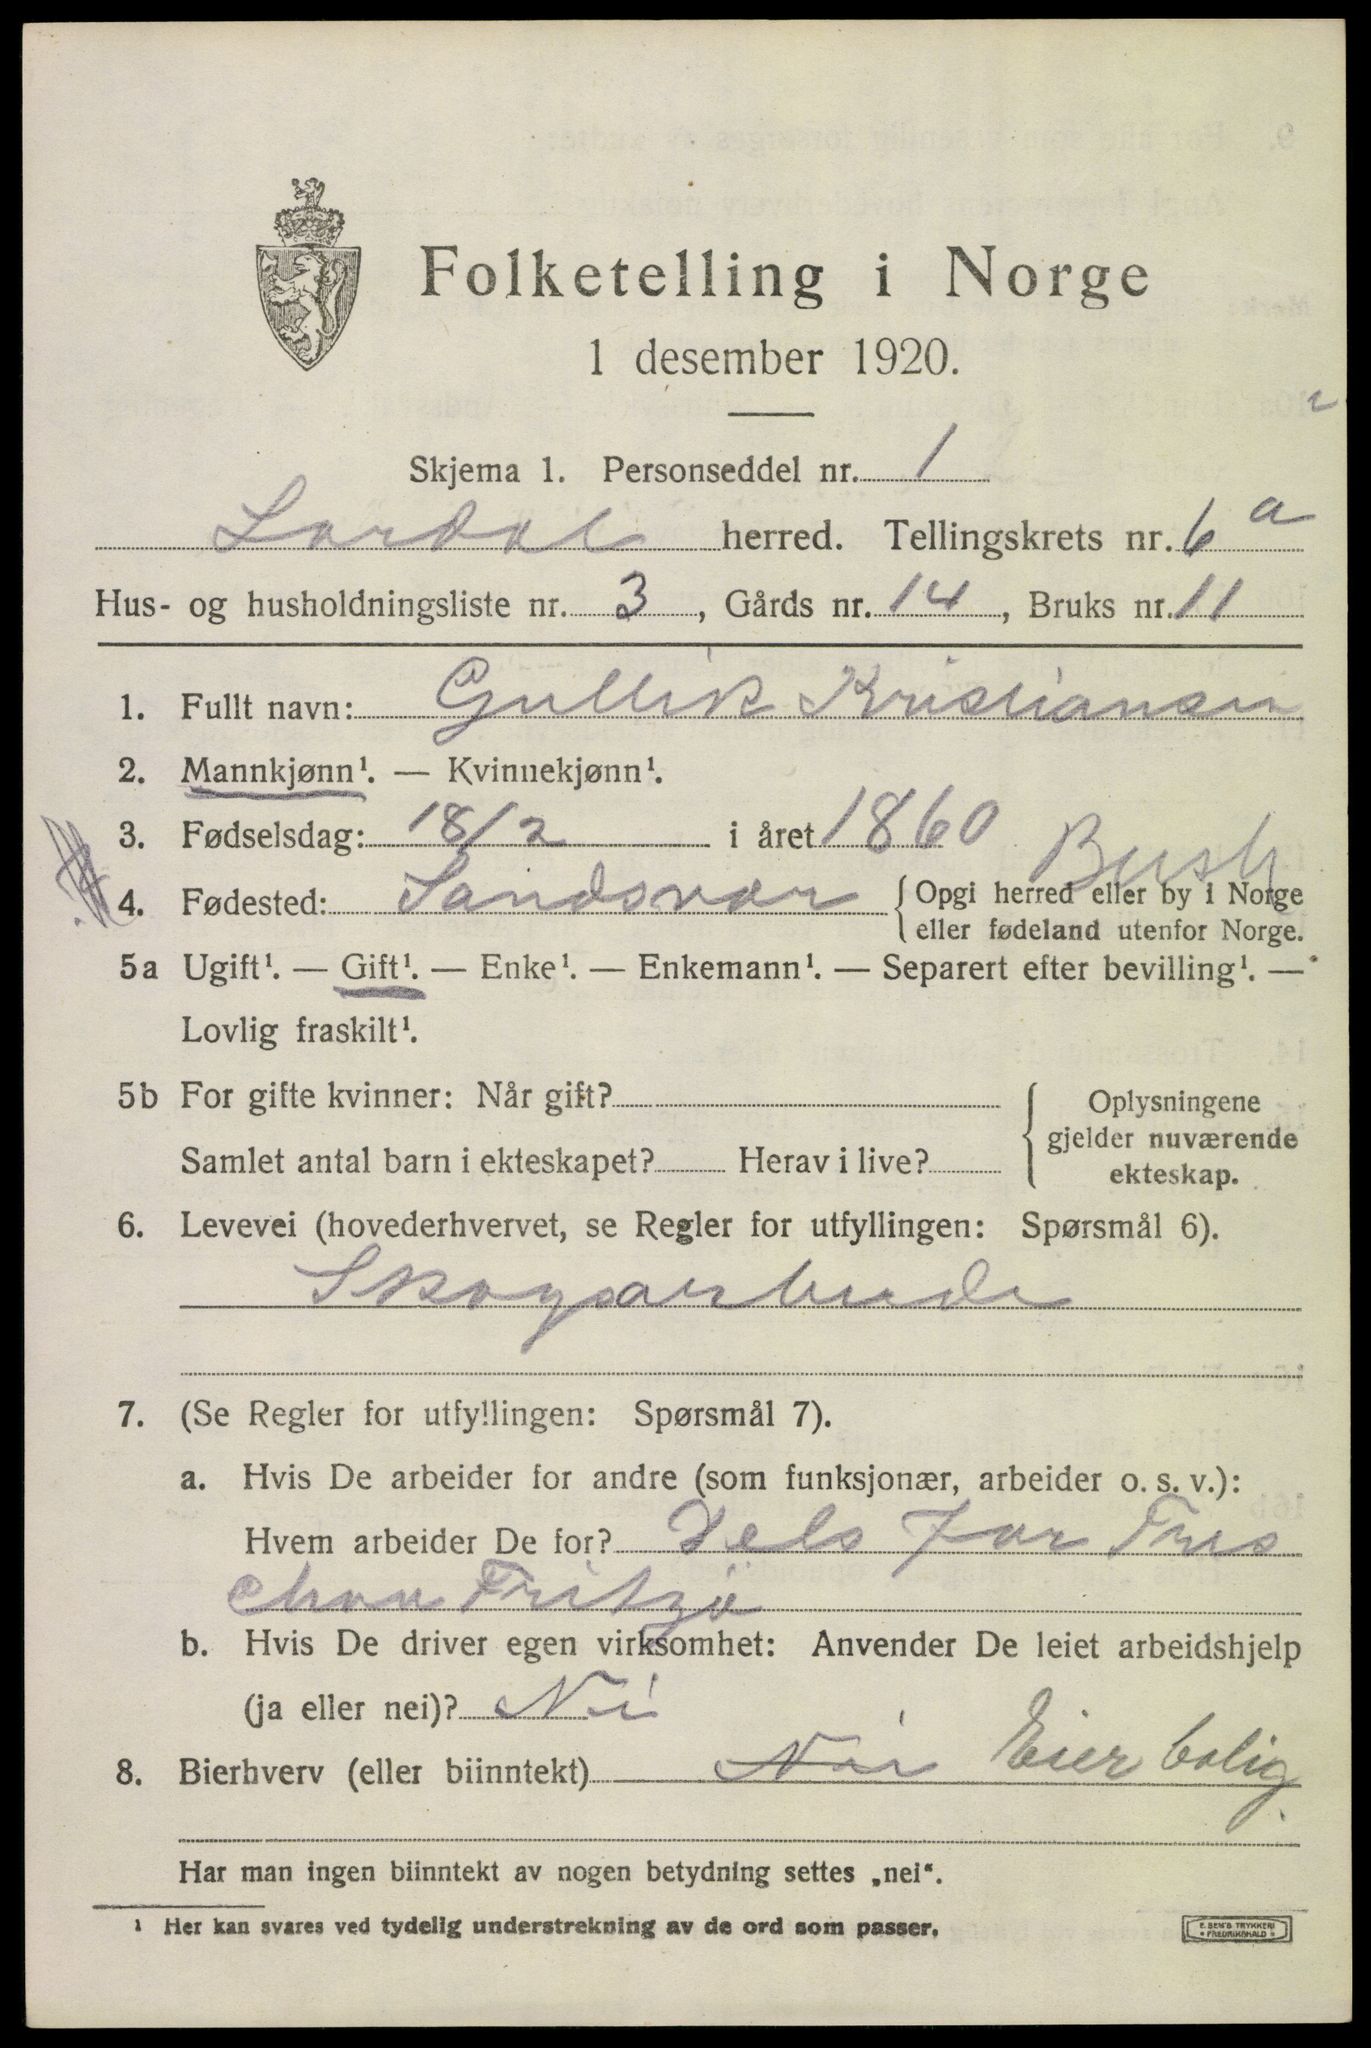 Folketelling i Norge
1 desember 1920.
Skjema 1. Personseddel nr. 1
Lardal herred. Tellingskrets nr. 6 a
Hus- og husholdningsliste nr. 3, Gårds nr. 14, Bruks nr. 11
1. Fullt navn: Gullik Kristiansen
2. Mannkjønn¹. — Kvinnekjønn¹.
3. Fødselsdag: 18/2 i året 1860
Busk
4. Fødested: Sandsvær { Opgi herred eller by i Norge
eller fødeland utenfor Norge.
5a Ugift¹. — Gift¹. — Enke¹. — Enkemann¹. — Separert efter bevilling¹. —
Lovlig fraskilt¹.
5b For gifte kvinner: Når gift?
Samlet antal barn i ekteskapet? Herav i live?
{ Oplysningene
gjelder nuværende
ekteskap.
6. Levevei (hovederhvervet, se Regler for utfyllingen: Spørsmål 6).
Skogsarbeide
7. (Se Regler for utfyllingen: Spørsmål 7).
a. Hvis De arbeider for andre (som funksjonær, arbeider o. s. v.):
Hvem arbeider De for? Dels for Tres
chow Fritzö
b. Hvis De driver egen virksomhet: Anvender De leiet arbeidshjelp
(ja eller nei)? Nei
8. Bierhverv (eller biinntekt) Nei Eier bolig
Har man ingen biinntekt av nogen betydning settes „nei“.
¹ Her kan svares ved tydelig understrekning av de ord som passer.
E. SEM'S TRYKKERI
FREDRIKSHALD